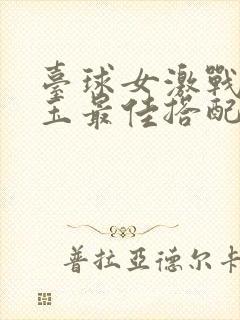 臺球女激戰
玉最佳搭配
普拉亞德尔卡